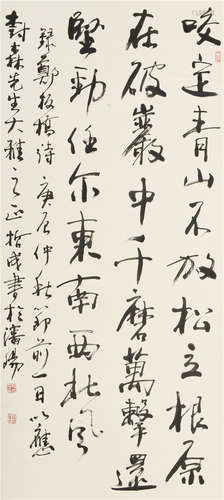 咬定青山不放松立根原
在破巖中千磨萬擊還
堅勁任尔東南西北風
錄鄭板橋诗 庚辰仲秋節前一日以應
封森先生大雅之正 哲成書於瀋陽